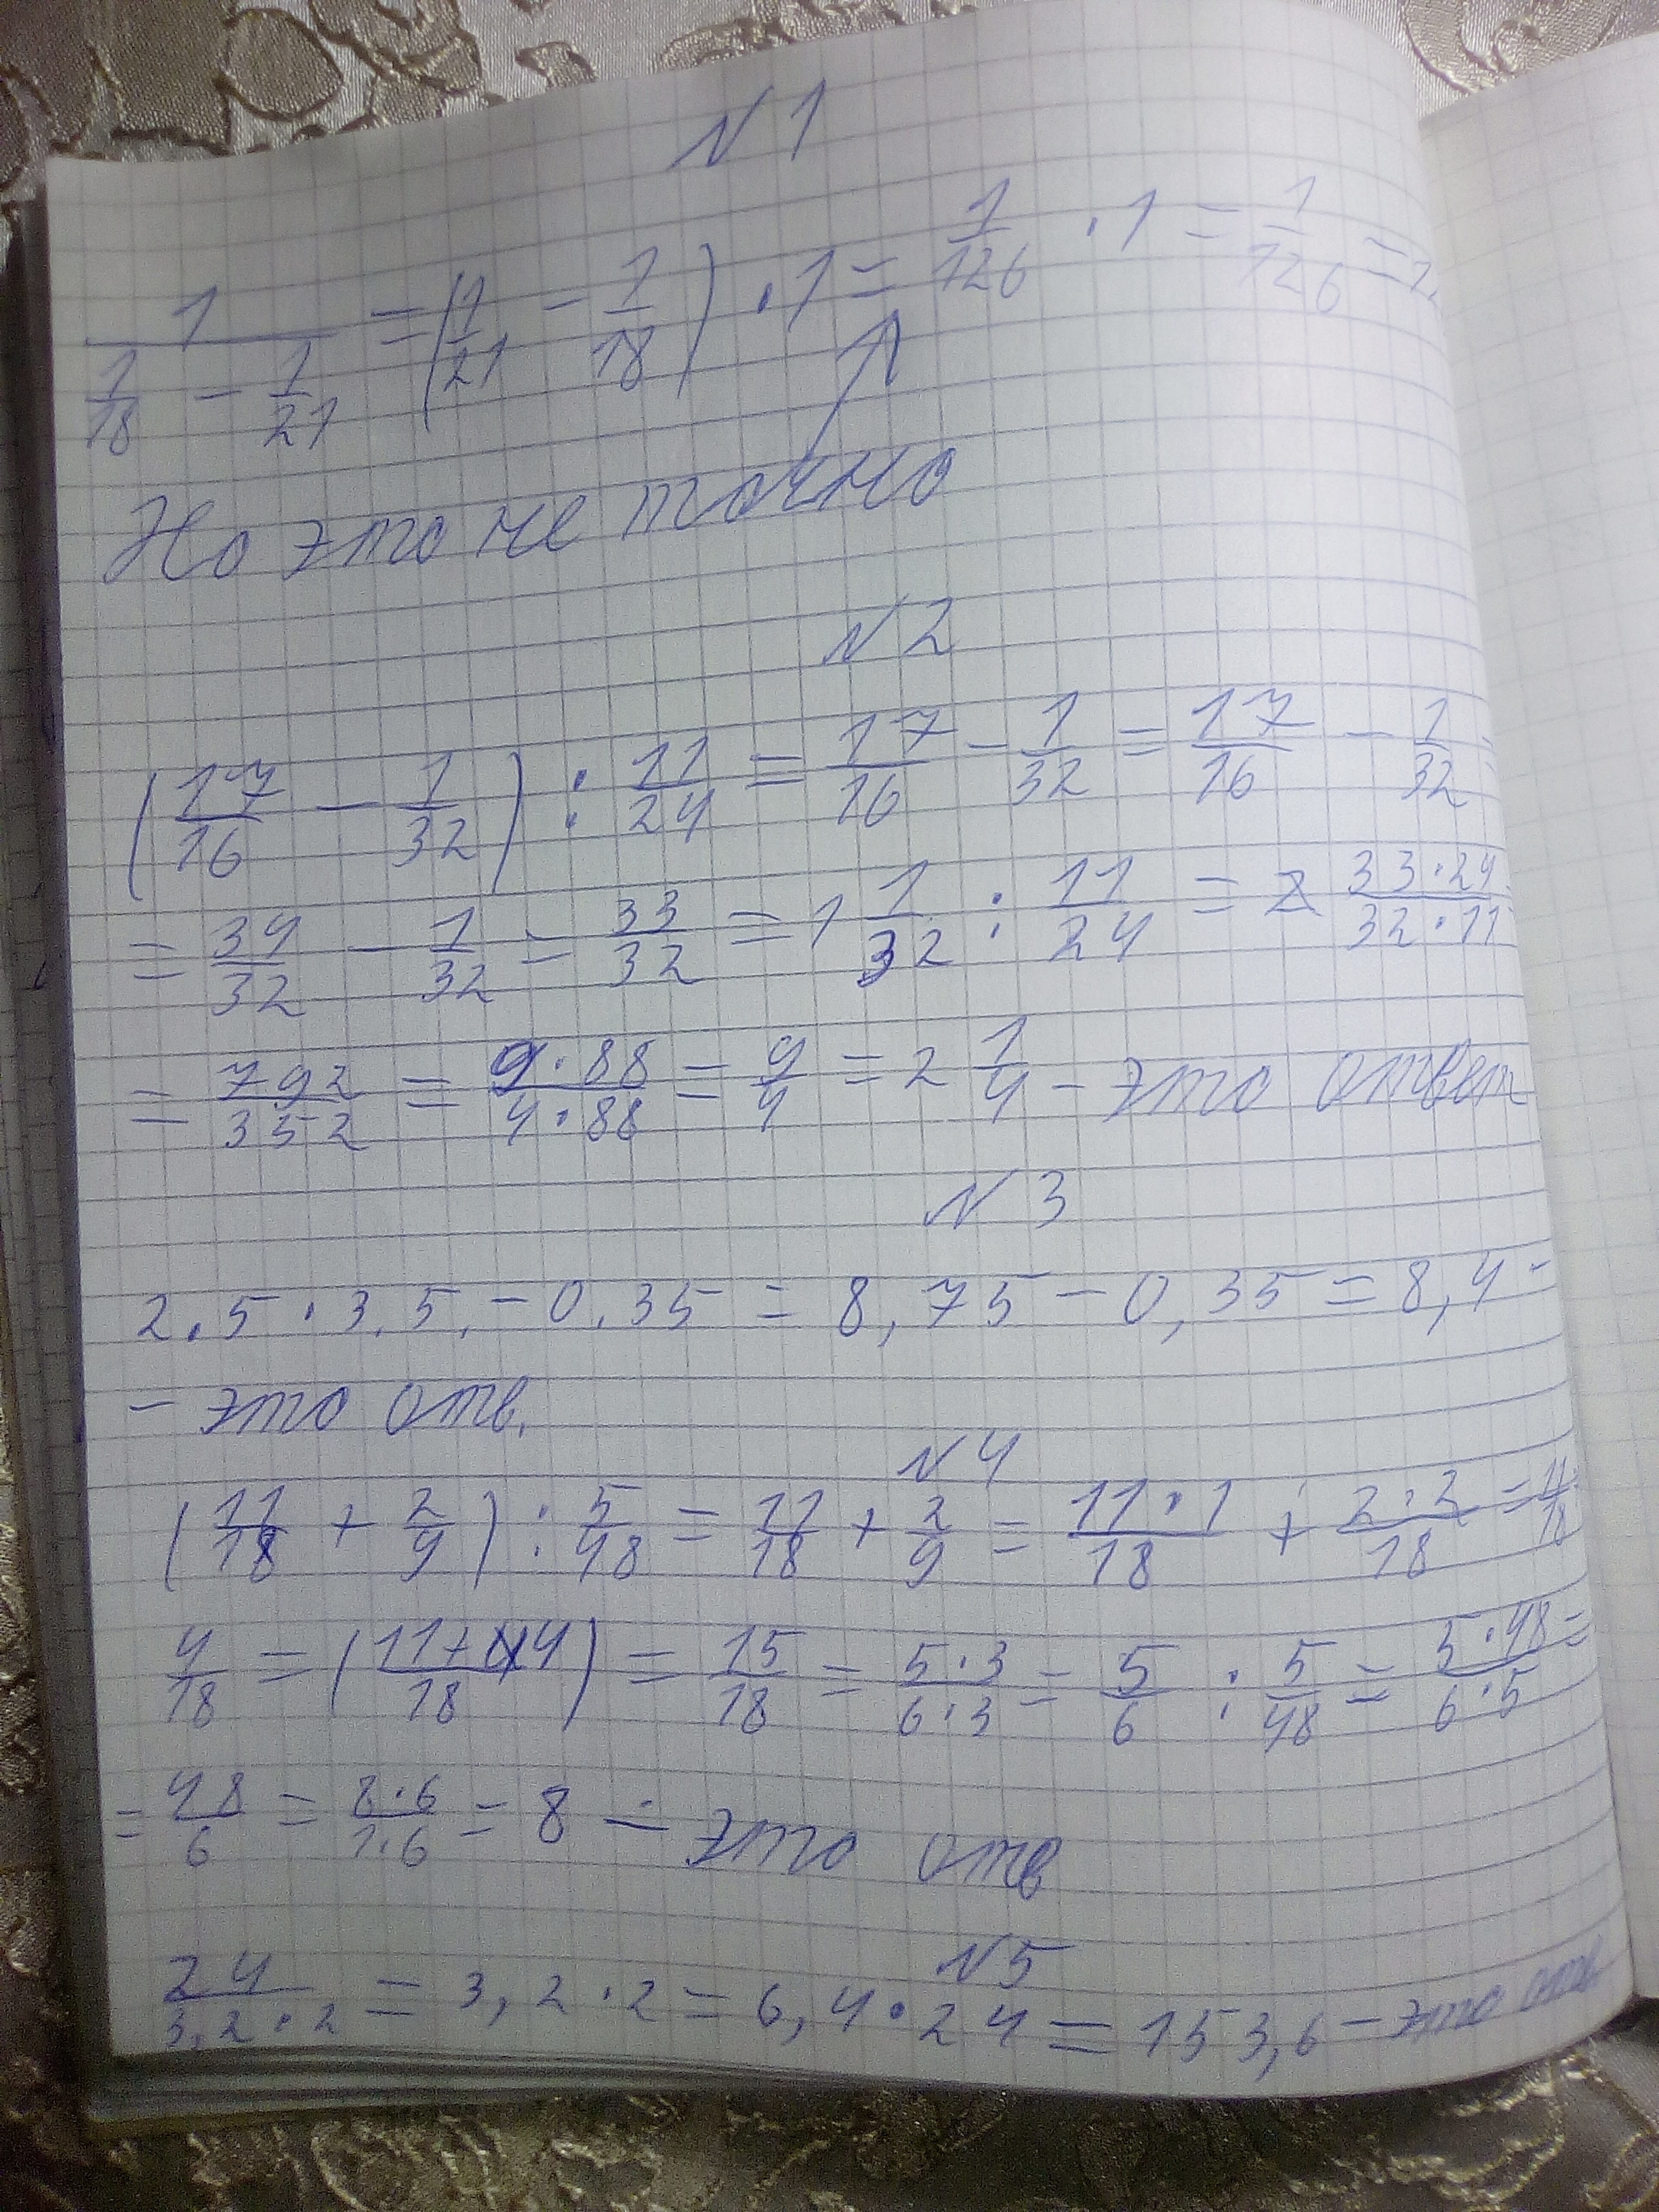 N 1
1/(1/18 - 1/21) = (1/21 - 1/18) · 1 = 1/126 · 1 = 1/126 =
Но это не точно
N 2
(17/16 - 1/32) : 11/24 = 17/16 - 1/32 = 17/16 - 1/32 =
= 34/32 - 1/32 = 33/32 = 1 1/32 : 11/24 = 33·24/32·11
= 792/352 = 9·88/4·88 = 9/4 = 2 1/4 - это ответ
N 3
2.5 · 3.5. - 0.35 = 8,75 - 0,35 = 8,4 -
- это отв.
N 4
(11/18 + 2/9) : 5/48 = 11/18 + 2/9 = 11·1/18 + 2·2/18 = 11/18
4/18 = (11+4/18) = 15/18 = 5·3/6·3 = 5/6 : 5/48 = 5·48/6·5 =
= 48/6 = 8·6/1·6 = 8 - это отв
N 5
24/3,2·2 = 3,2·2 = 6,4·24 = 153,6 - это отв